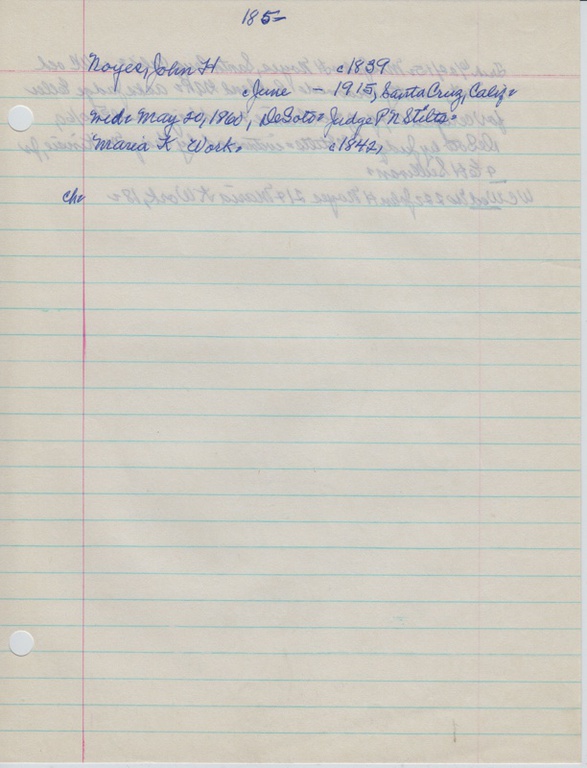 185-
Noyes, John H c1839
c June - 1915, Santa Cruz, Calif=
Wed= May 20, 1860, DeSoto= Judge P N Stilts=
Maria K Work= c1842,
ch=